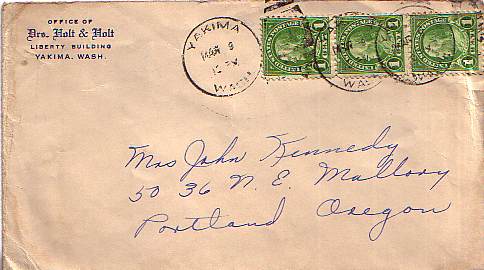 OFFICE OF
Drs. Holt & Holt
LIBERTY BUILDING
YAKIMA, WASH.
YAKIMA
MAR 9
WASH
1 1
1 1
1 1
Mrs John Kennedy
50 36 N. E. Mallory
Portland Oregon